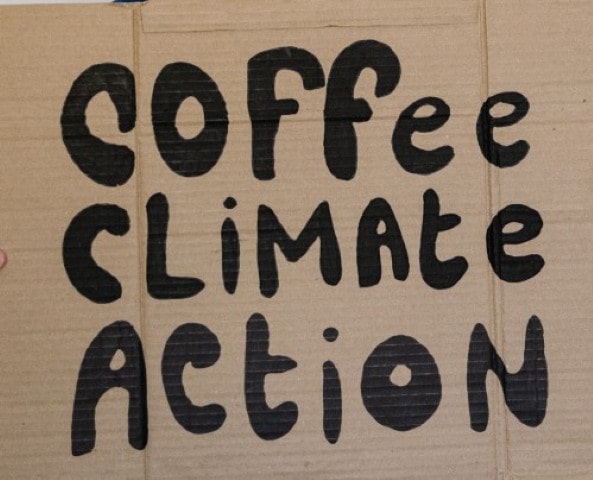 COFFee
CLiMAte
ACtiON